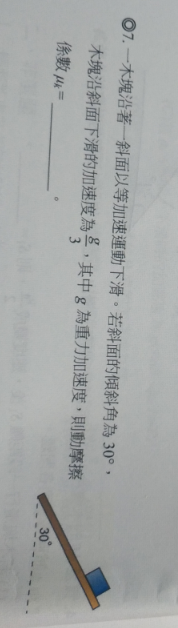 ◎7. 一木塊沿著一斜面以等加速運動下滑。若斜面的傾斜角為 30°，
木塊沿斜面下滑的加速度為 g/3，其中 g 為重力加速度，則動摩擦
係數 μk = ______。
30°